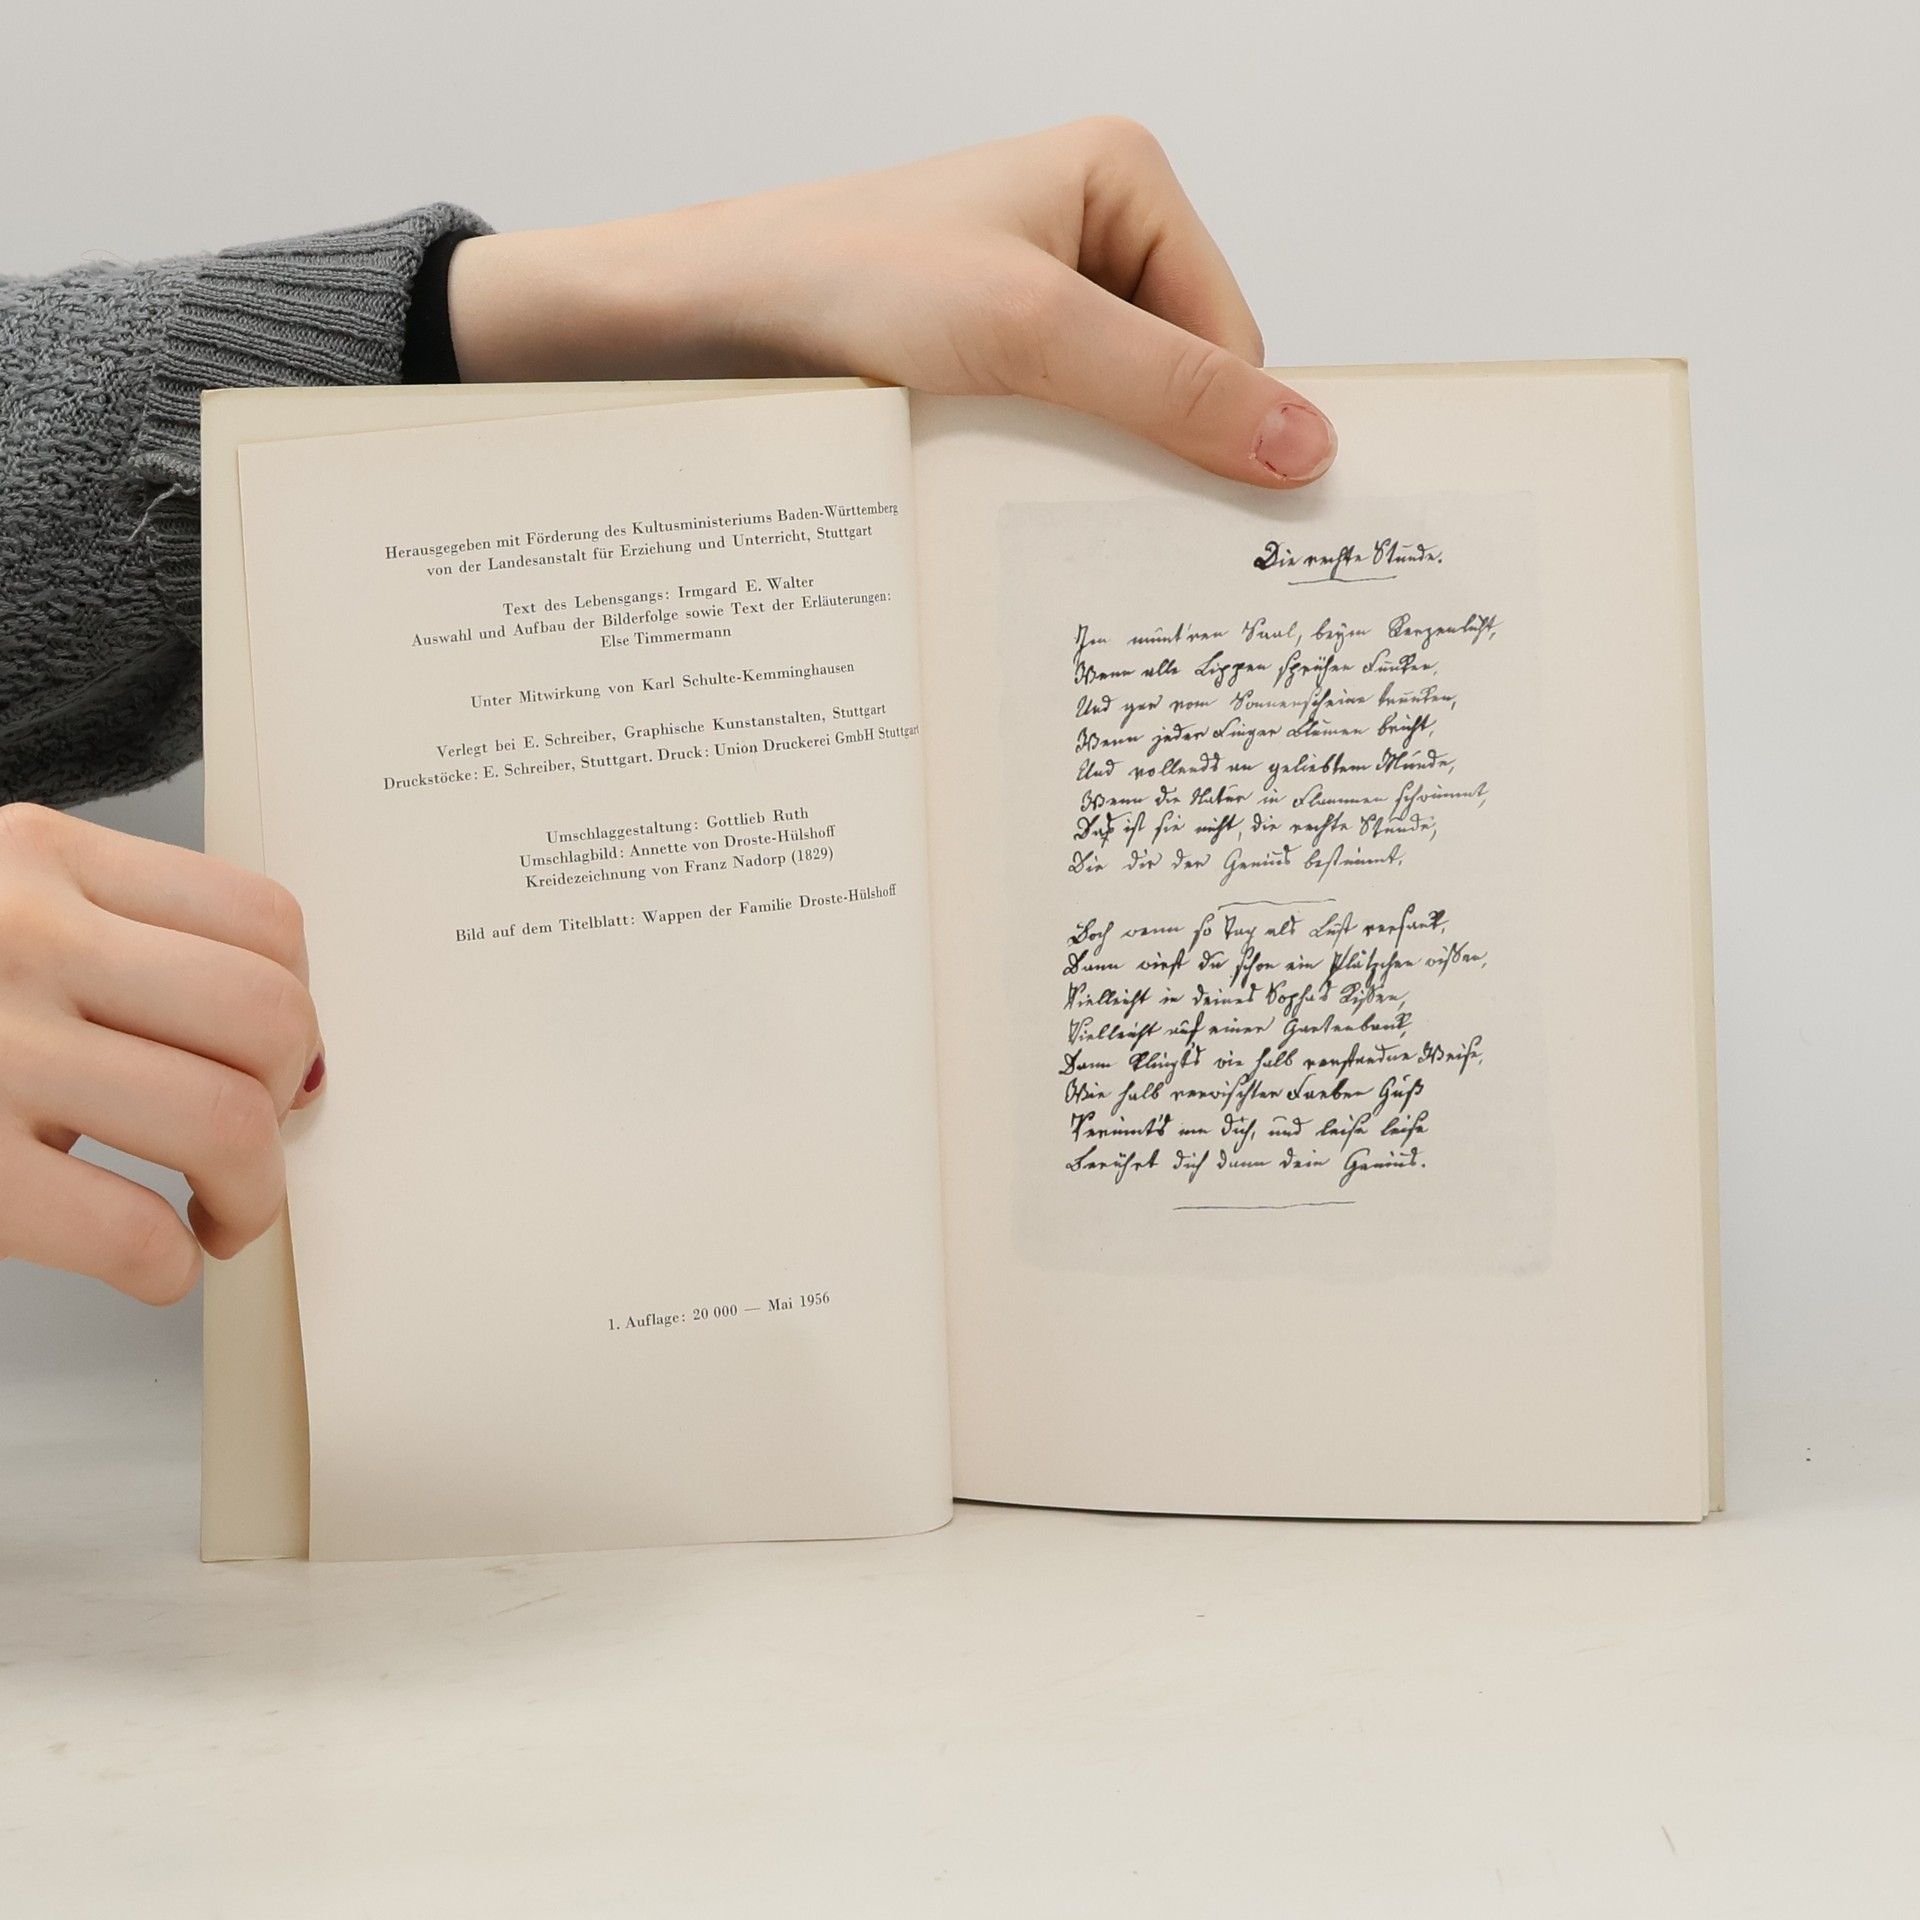 Herausgegeben mit Förderung des Kultusministeriums Baden-Württemberg
von der Landesanstalt für Erziehung und Unterricht, Stuttgart
Text des Lebensgangs: Irmgard E. Walter
Auswahl und Aufbau der Bilderfolge sowie Text der Erläuterungen:
Else Timmermann
Unter Mitwirkung von Karl Schulte-Kemminghausen
Verlegt bei E. Schreiber, Graphische Kunstanstalten, Stuttgart
Druckstöcke: E. Schreiber, Stuttgart. Druck: Union Druckerei GmbH Stuttgart
Umschlaggestaltung: Gottlieb Ruth
Umschlagbild: Annette von Droste-Hülshoff
Kreidezeichnung von Franz Nadorp (1829)
Bild auf dem Titelblatt: Wappen der Familie Droste-Hülshoff
1. Auflage: 20 000 — Mai 1956
Die rechte Stunde.
Im munt'ren Saal, beym Kerzenlicht,
Wenn alle Lippen sprühen Funken,
Und gar vom Sonnenscheine trunken,
Wenn jeder Finger Blumen bricht,
Und vollends an geliebtem Munde,
Wenn die Natur in Flammen schwimmt,
Das ist sie nicht, die rechte Stunde,
Die dir der Genius bestimmt.
Doch wenn so Tag als Lust versank,
Dann wirst du schon ein Plätzchen wissen,
Vielleicht in deines Sopha's Kissen,
Vielleicht auf einer Gartenbank,
Dann klingt's wie halb verstandne Weise,
Wie halb verwischter Farben Guß
Verrinnt's um dich, und leise leise
Berührt dich dann dein Genius.